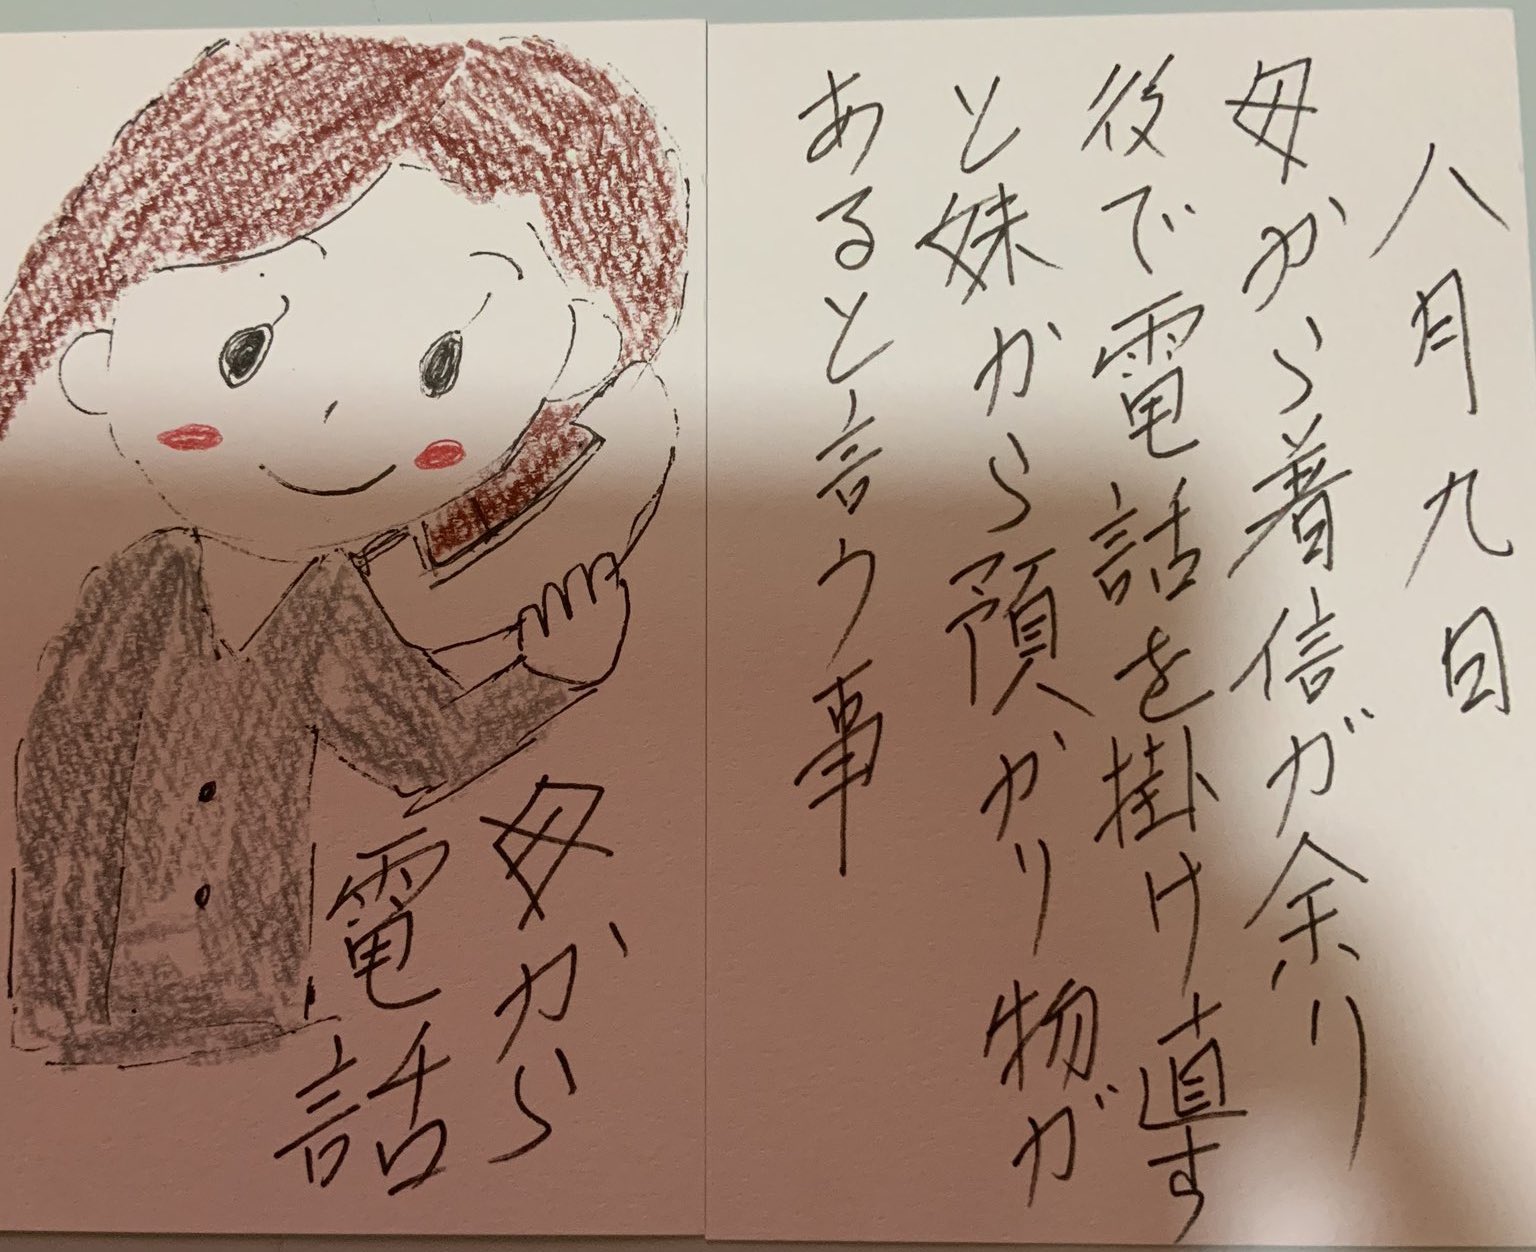 八月九日
母から着信が余り
後で電話を掛け直す
と妹から預かり物が
あると言う事
母から
電話